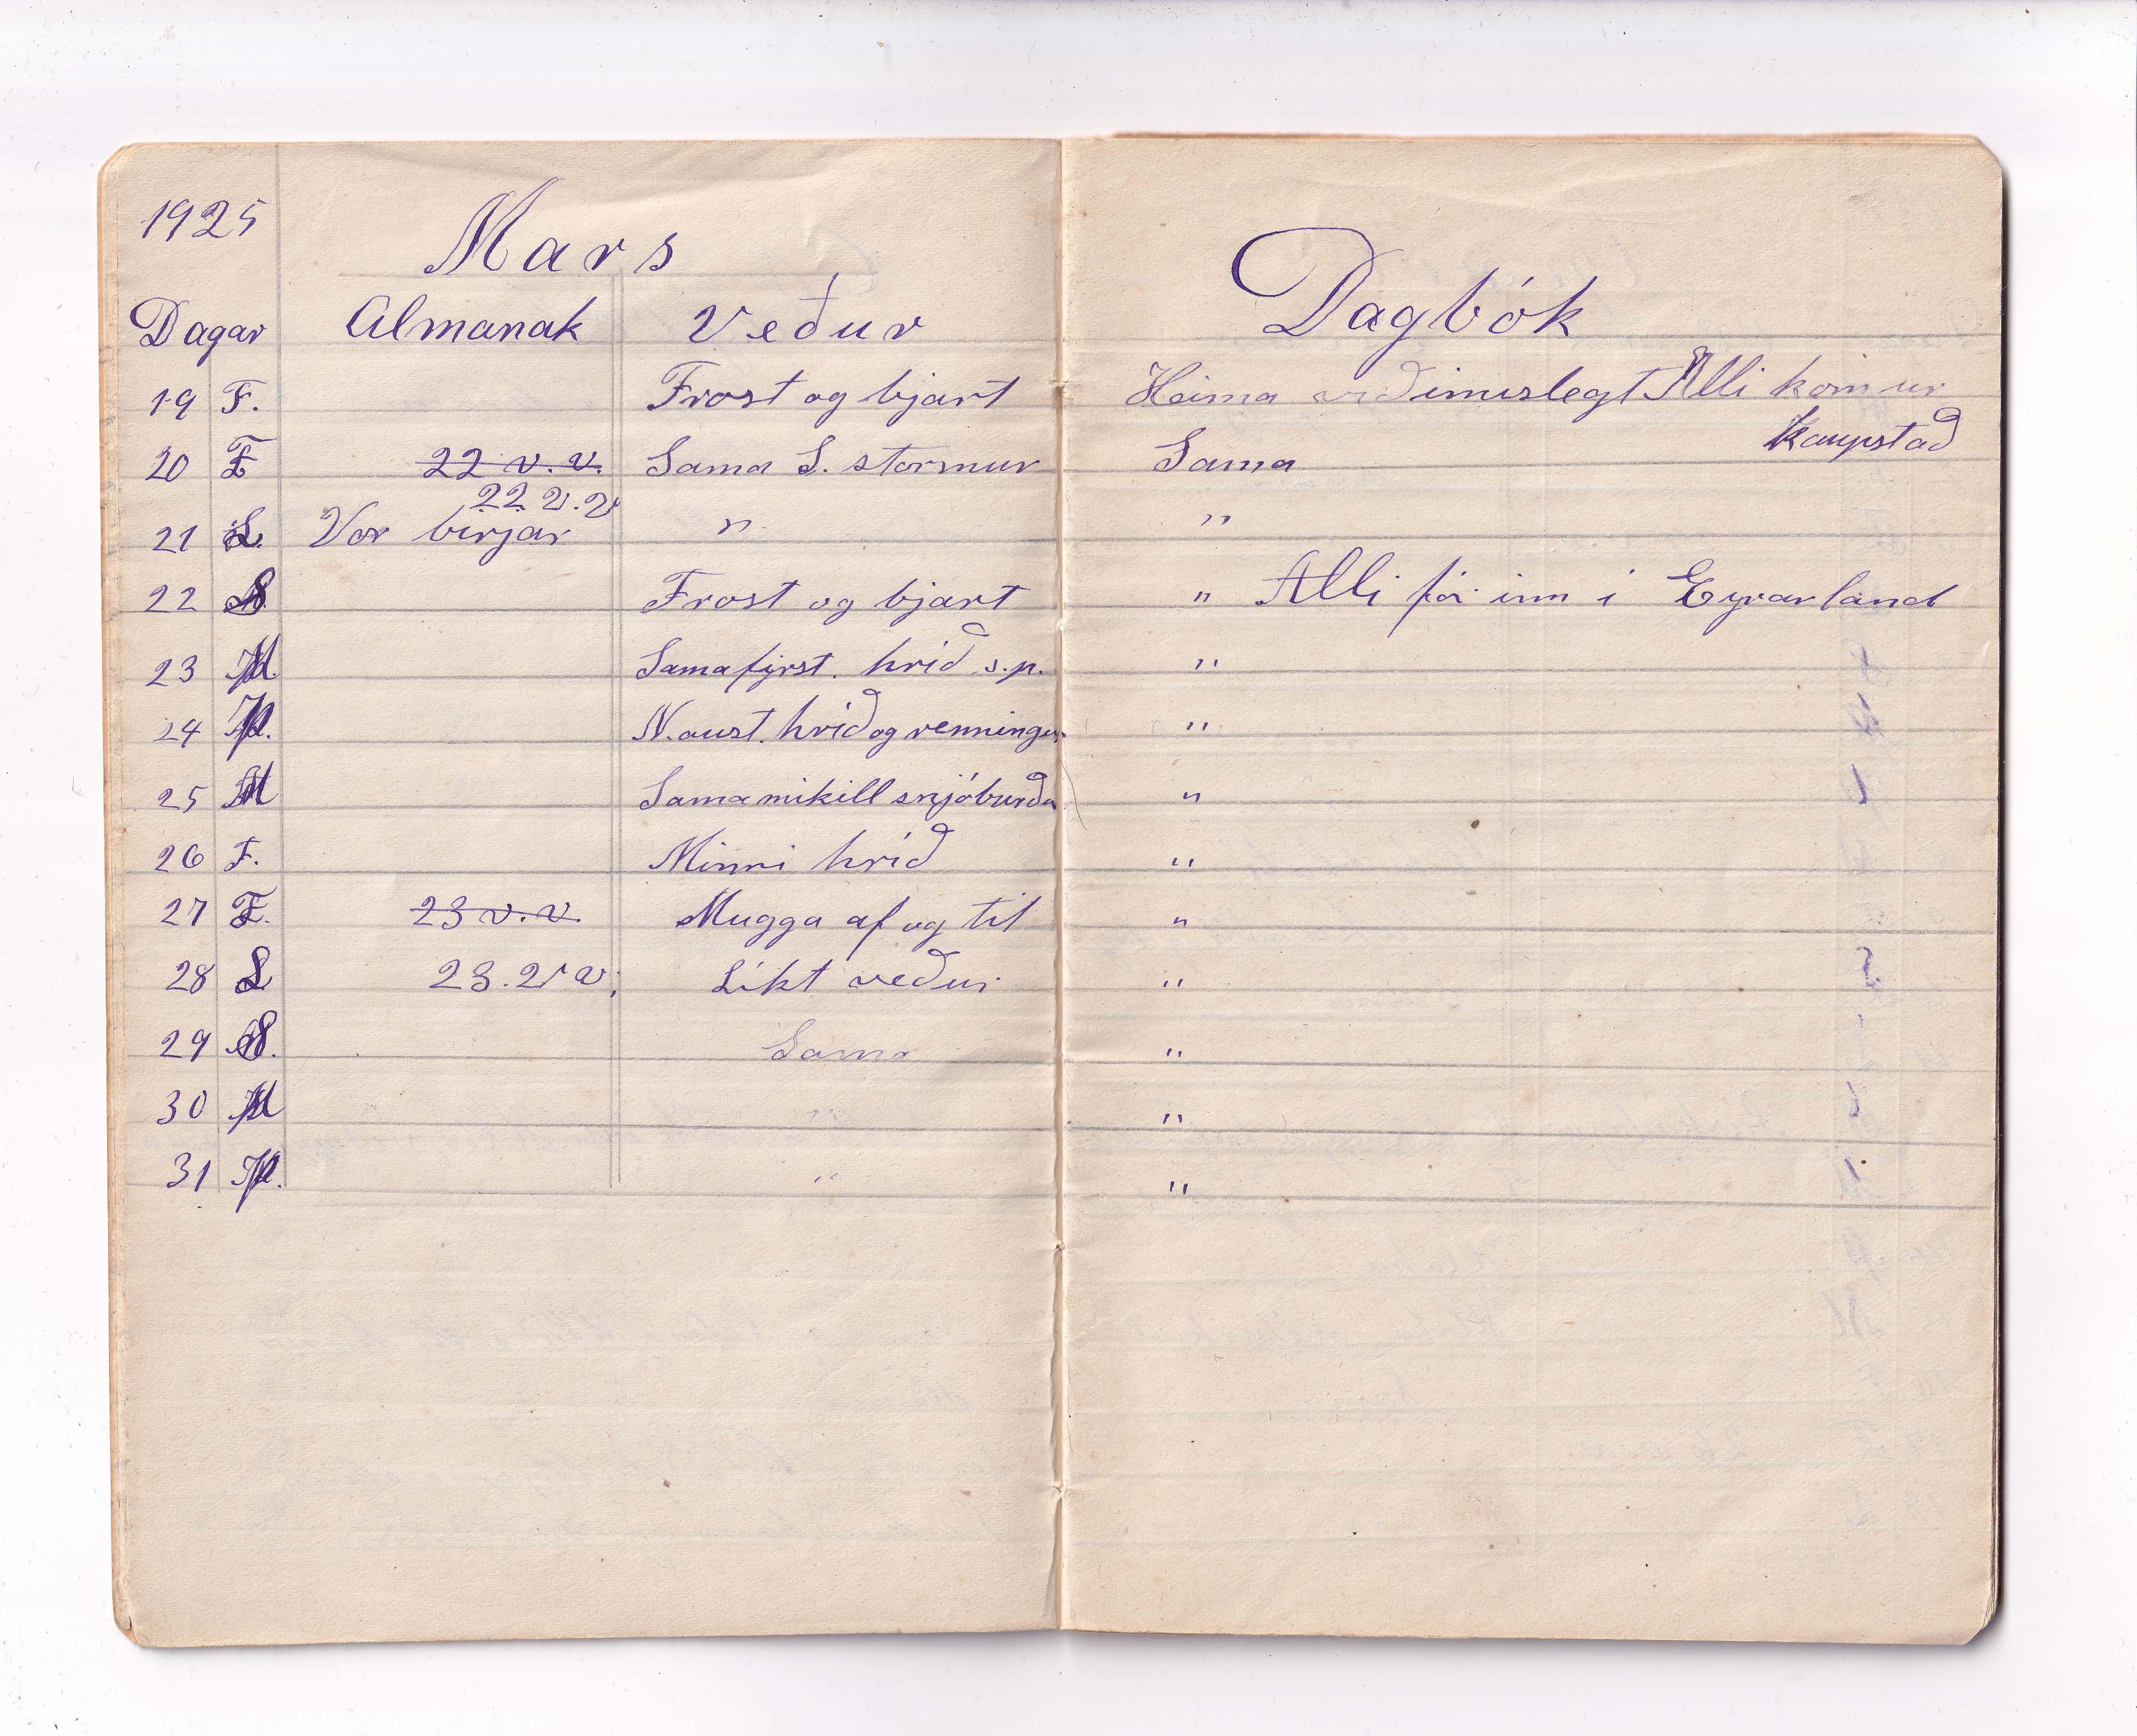 1925
Mars
Dagar Almanak Veður
19 F. Frost og bjart
20 F 22 v. v. Sama S. stormur
22 v. v
21 L. Vor birjar "
22 S Frost og bjart
23 M. Sama fyrst. hríð s.p.
24 Þ. N. aust. hríð og renningur
25 M Sama mikill snjóburða
26 F. Minni hríð
27 F. 23 v. v. Mugga af og til
28 L 23. v v. Líkt veður
29 S. Sama
30 M "
31 Þ. "
Dagbók
Heima við imislegt Alli kom úr
kaupstað
Sama
"
" Alli fór inn í Eyrarland
"
"
"
"
"
"
"
"
"